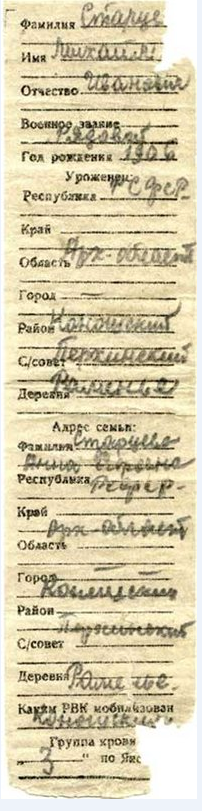 Фамилия Старце
Имя Михаил
Отчество Иванович
Военное звание
Рядовой
Год рождения 1906
Уроженец
Республика РСФСР
Край
Область Арх-область
Город —
Район Коношский
С/совет Пежинский
Деревня Раменье
Адрес семьи:
Фамилия Старцева
Анна
Республика РСФСР-
Край
Арх-област
Область
Город —
Коношский
Район
Пежинский
С/совет
Деревня Раменье.
Каким РВК мобилизован
Коношским
Группа крови
„ 3 “ по Янс